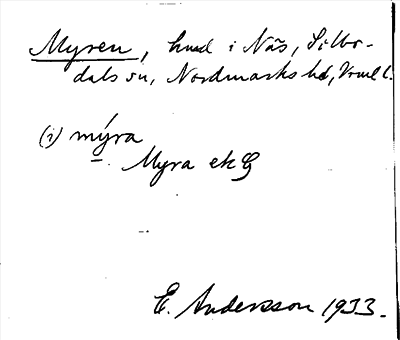 Myren, hmd i Näs, Silbo-
dals sn, Nordmarks hd, Vrml l.
(i) mýra
Myra ek
E. Andersson 1933.